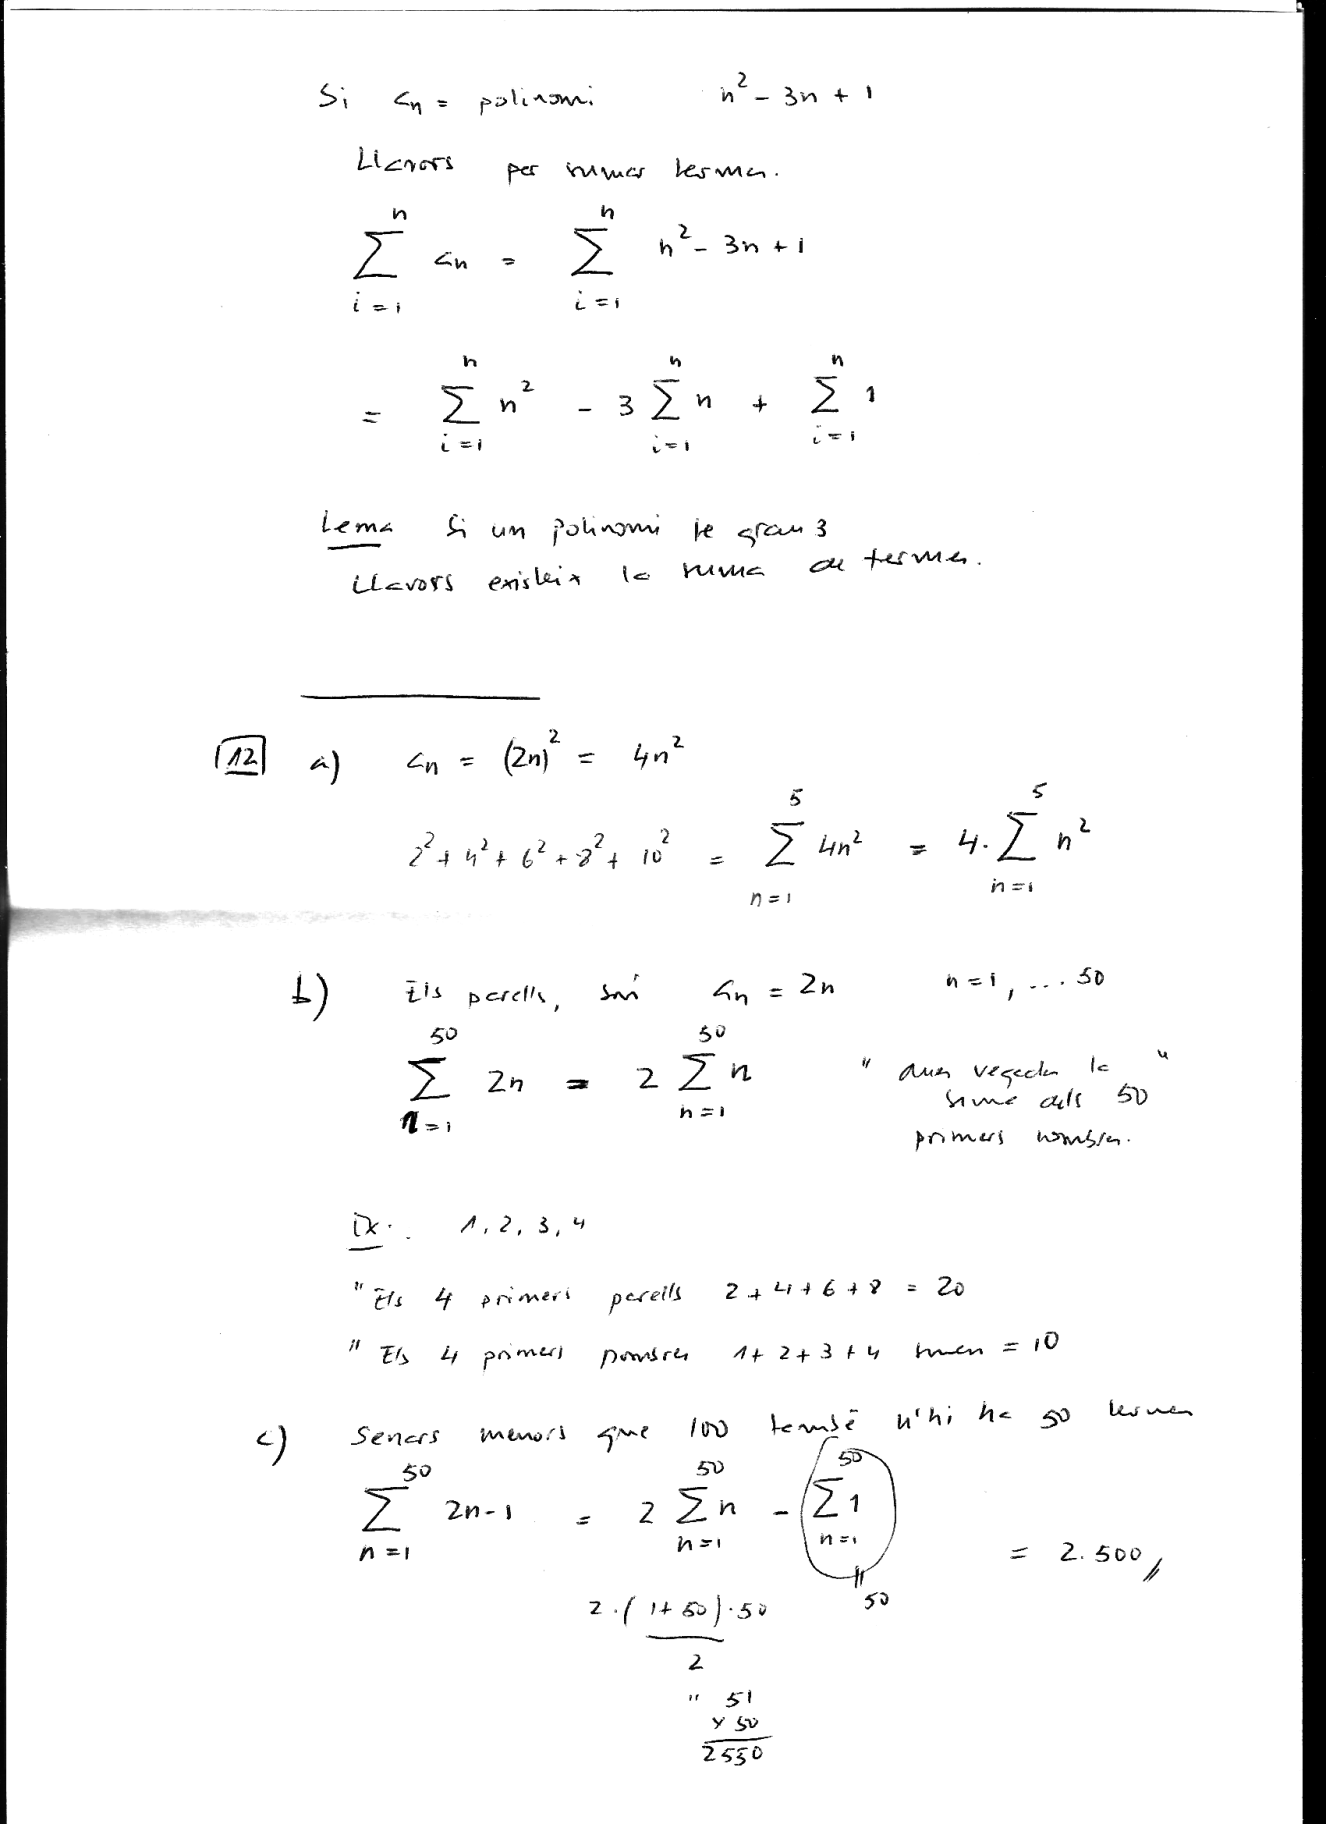 Si aₙ = polinomi n² - 3n + 1
Llavors per sumar termes.
∑_{i=1}^{n} aₙ = ∑_{i=1}^{n} n² - 3n + 1
= ∑_{i=1}^{n} n² - 3 ∑_{i=1}^{n} n + ∑_{i=1}^{n} 1
Lema Si un polinomi te grau 3
Llavors existeix la suma de termes.
12 a) aₙ = (2n)² = 4n²
2² + 4² + 6² + 8² + 10² = ∑_{n=1}^{5} 4n² = 4 · ∑_{n=1}^{5} n²
b) Els parells, són aₙ = 2n n = 1, ... 50
∑_{n=1}^{50} 2n = 2 ∑_{n=1}^{50} n
" dues vegades la "
suma dels 50
primers nombres.
Ex. 1, 2, 3, 4
" Els 4 primers parells 2 + 4 + 6 + 8 = 20
" Els 4 primers nombres 1 + 2 + 3 + 4 sumen = 10
c) Senars menors que 100 també n'hi ha 50 termes
∑_{n=1}^{50} 2n - 1 = 2 ∑_{n=1}^{50} n - ∑_{n=1}^{50} 1 = 2.500//
2 · (1 + 50) · 50 / 2
" 50
" 51
x 50
2550